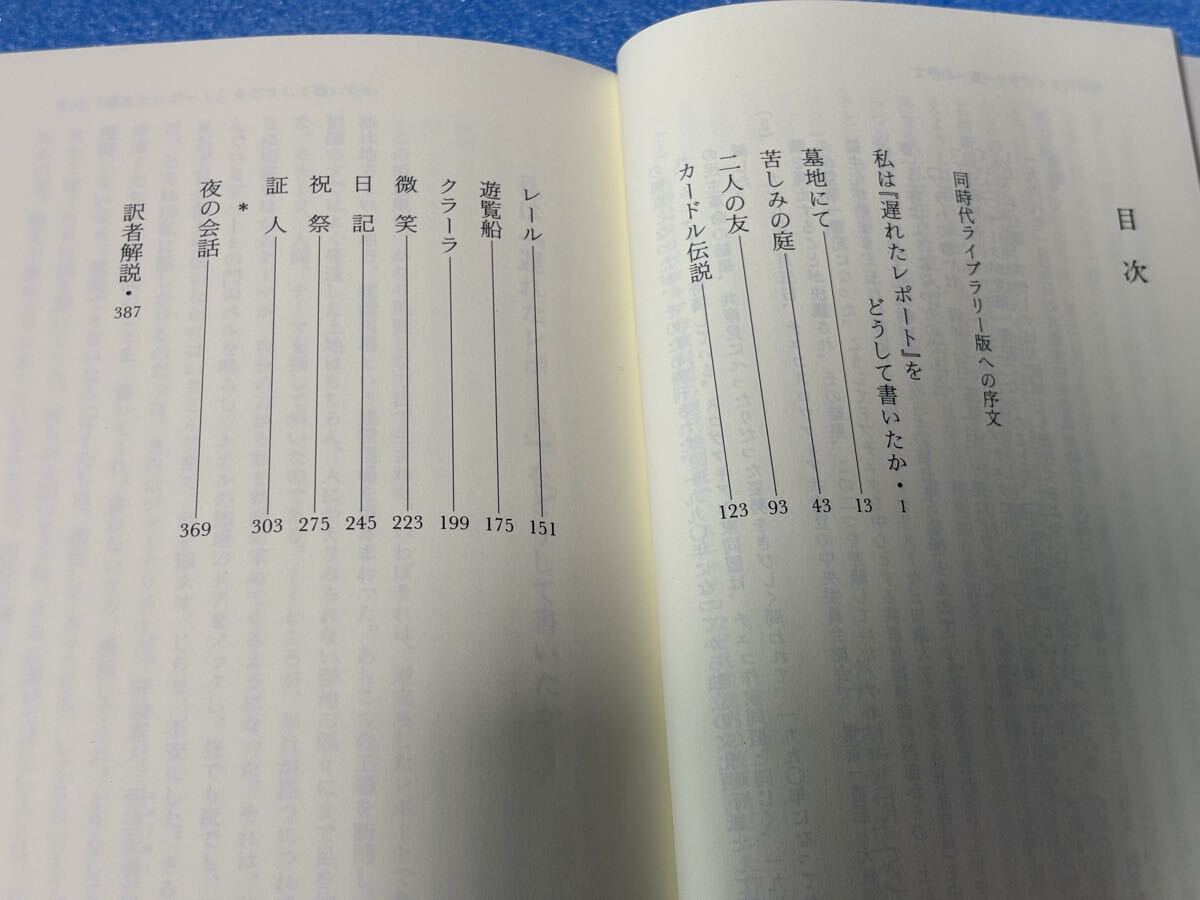 目次
同時代ライブラリー版への序文
私は『遅れたレポート』を
どうして書いたか・1
墓地にて 13
苦しみの庭 43
二人の友 93
カードル伝説 123
レール 151
遊覧船 175
クラーラ 199
微笑 223
日記 245
祝祭 275
証人 303
*
夜の会話 369
訳者解説・387